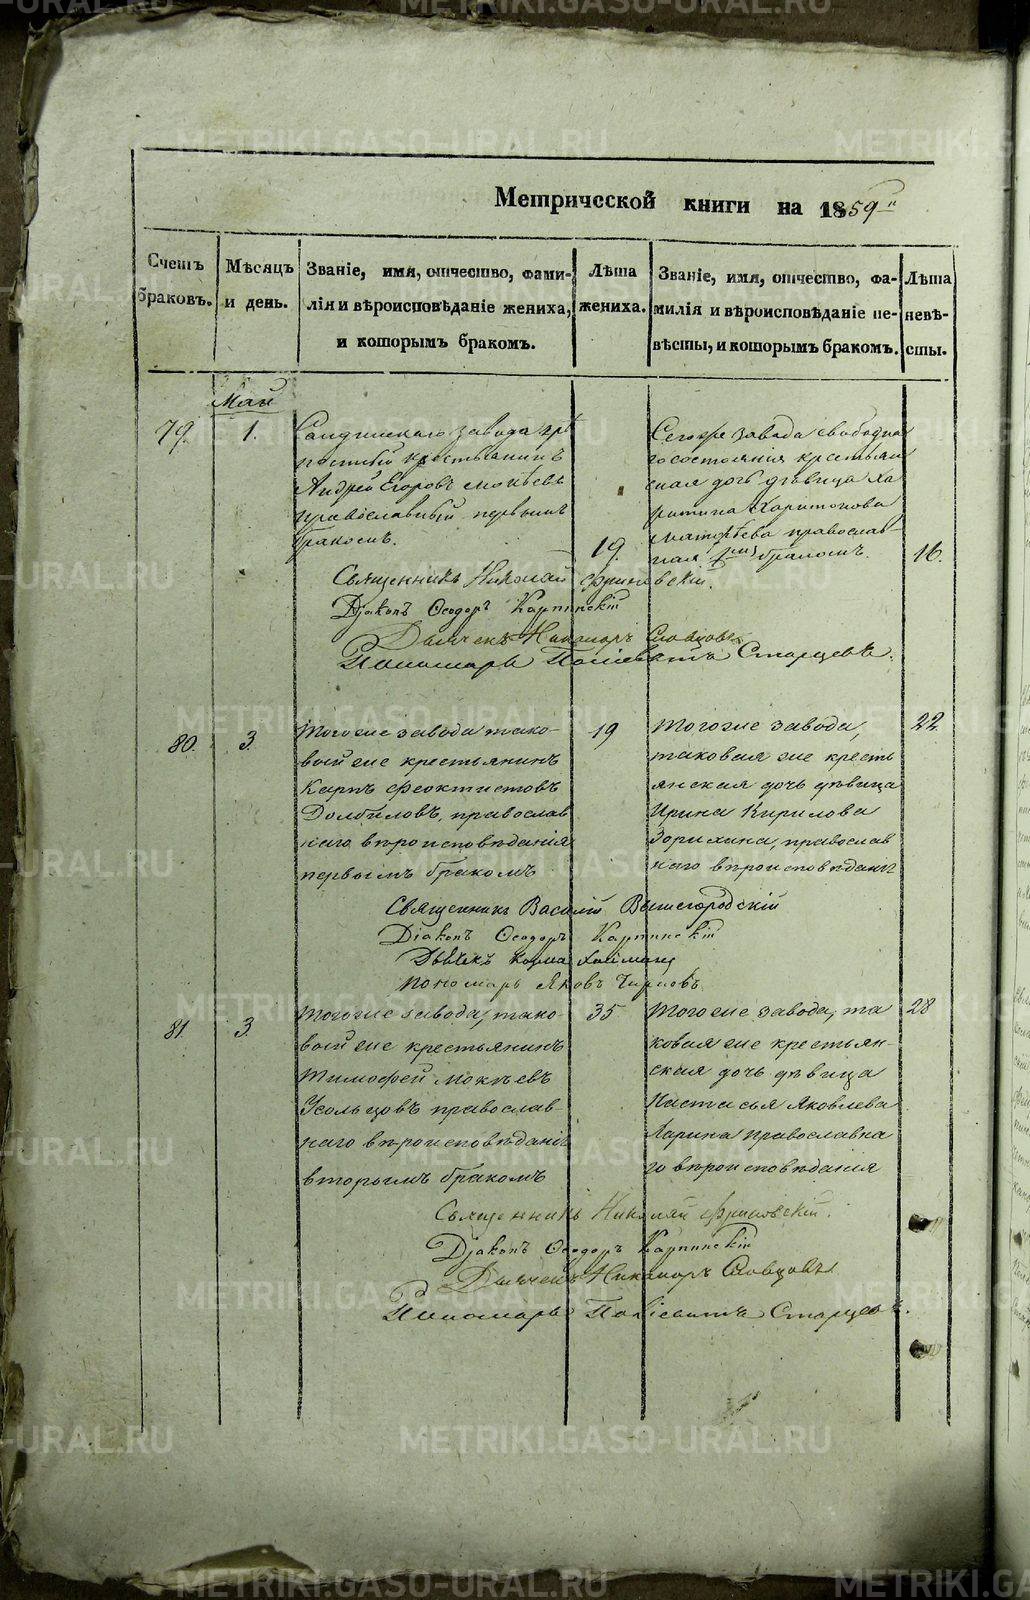 METRIKI.GASO-URAL.RU
Метрической книги на 1859й
Счетъ браковъ.
Мѣсяцъ и день.
Званіе, имя, отчество, фами-
лія и вѣроисповѣданіе жениха,
и которымъ бракомъ.
Лѣта
жениха.
Званіе, имя, отчество, фа-
милія и вѣроисповѣданіе не-
вѣсты, и которымъ бракомъ.
Лѣта
невѣ-
сты.
Май
79. 1.
завода крѣ
постный крестьянинъ
Андрей Егоровъ
православный первымъ
бракомъ.
19.
Сегоже завода свободна
го состоянія крестьян
ская дочь дѣвица Ха
ритина Харитонова
православ-
ная 1мъ бракомъ.
16.
Священникъ Николай
Діаконъ Ѳеодоръ Карпинскій
Дьячекъ Никаноръ Словцовъ
Пономарь Старцевъ.
80. 3.
Тогоже завода тако-
войже крестьянинъ
Карпъ Феоктистовъ
Долбиловъ, православ
наго вѣроисповѣданія
первымъ бракомъ
19
Тогоже завода,
таковая же кресть
янская дочь дѣвица
Ирина Кирилова
Зорихина, православ
наго вѣроисповѣдані
22.
Священникъ Василій Вышегородскій
Діаконъ Ѳеодоръ Карпинскій
Дьячекъ Козма
Пономарь Яковъ
81. 3.
Тогоже завода, тако-
войже крестьянинъ
Тимофей Мокѣевъ
Усольцовъ православ-
наго вѣроисповѣдані
вторымъ бракомъ
35
Тогоже завода, та
ковая же крестьян-
ская дочь дѣвица
Настасья Яковлева
Ларина православна
го вѣроисповѣданія
28
Священникъ Николай
Діаконъ Ѳеодоръ Карпинскій
Дьячекъ Никаноръ Словцовъ
Пономарь Старцевъ.